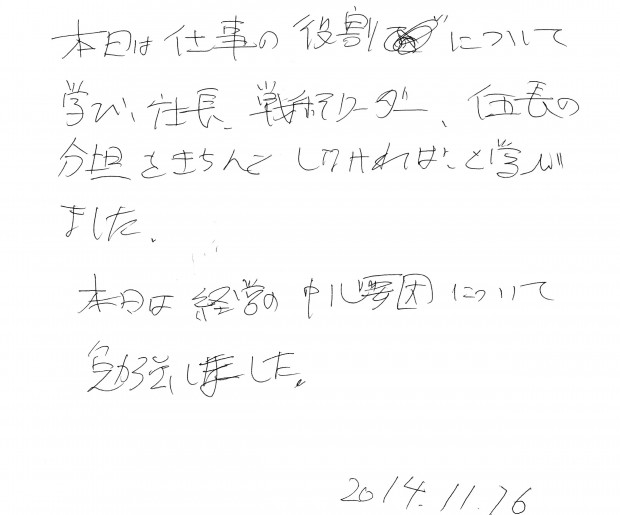 本日は仕事の役割について
学び、社長、戦術リーダー、伍長の
分担をきちんとしなければ、と学び
ました。
本日は経営の中心要因について
勉強しました。
2014.11.16